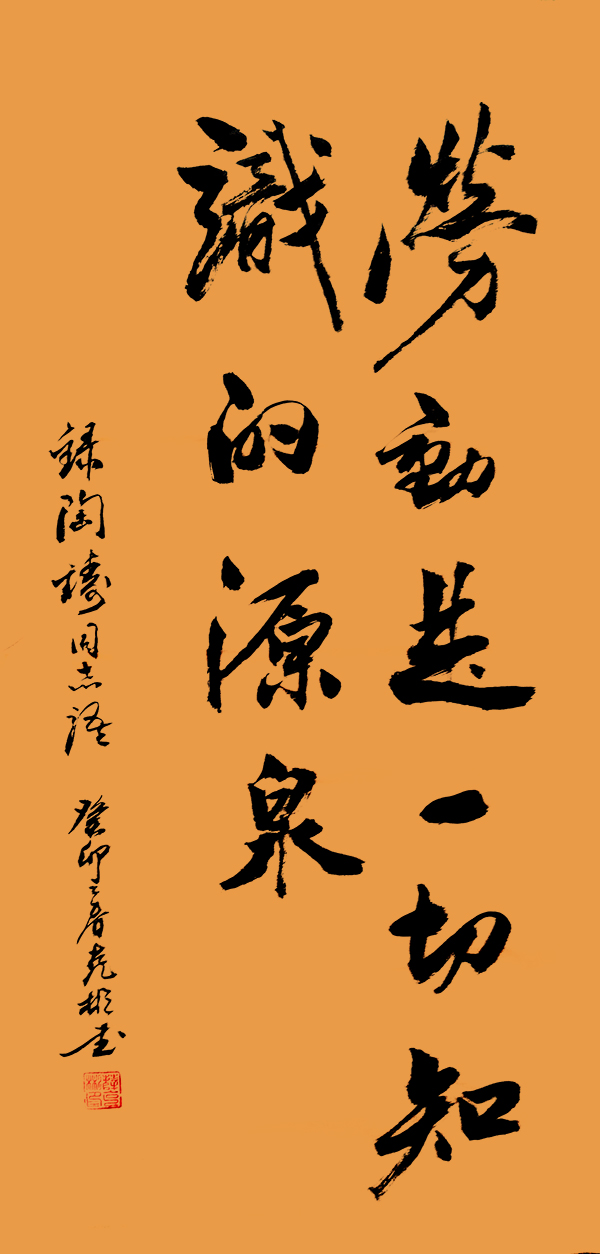 勞動是一切知
識的源泉
録陶鑄同志語 癸卯之春堯彬書